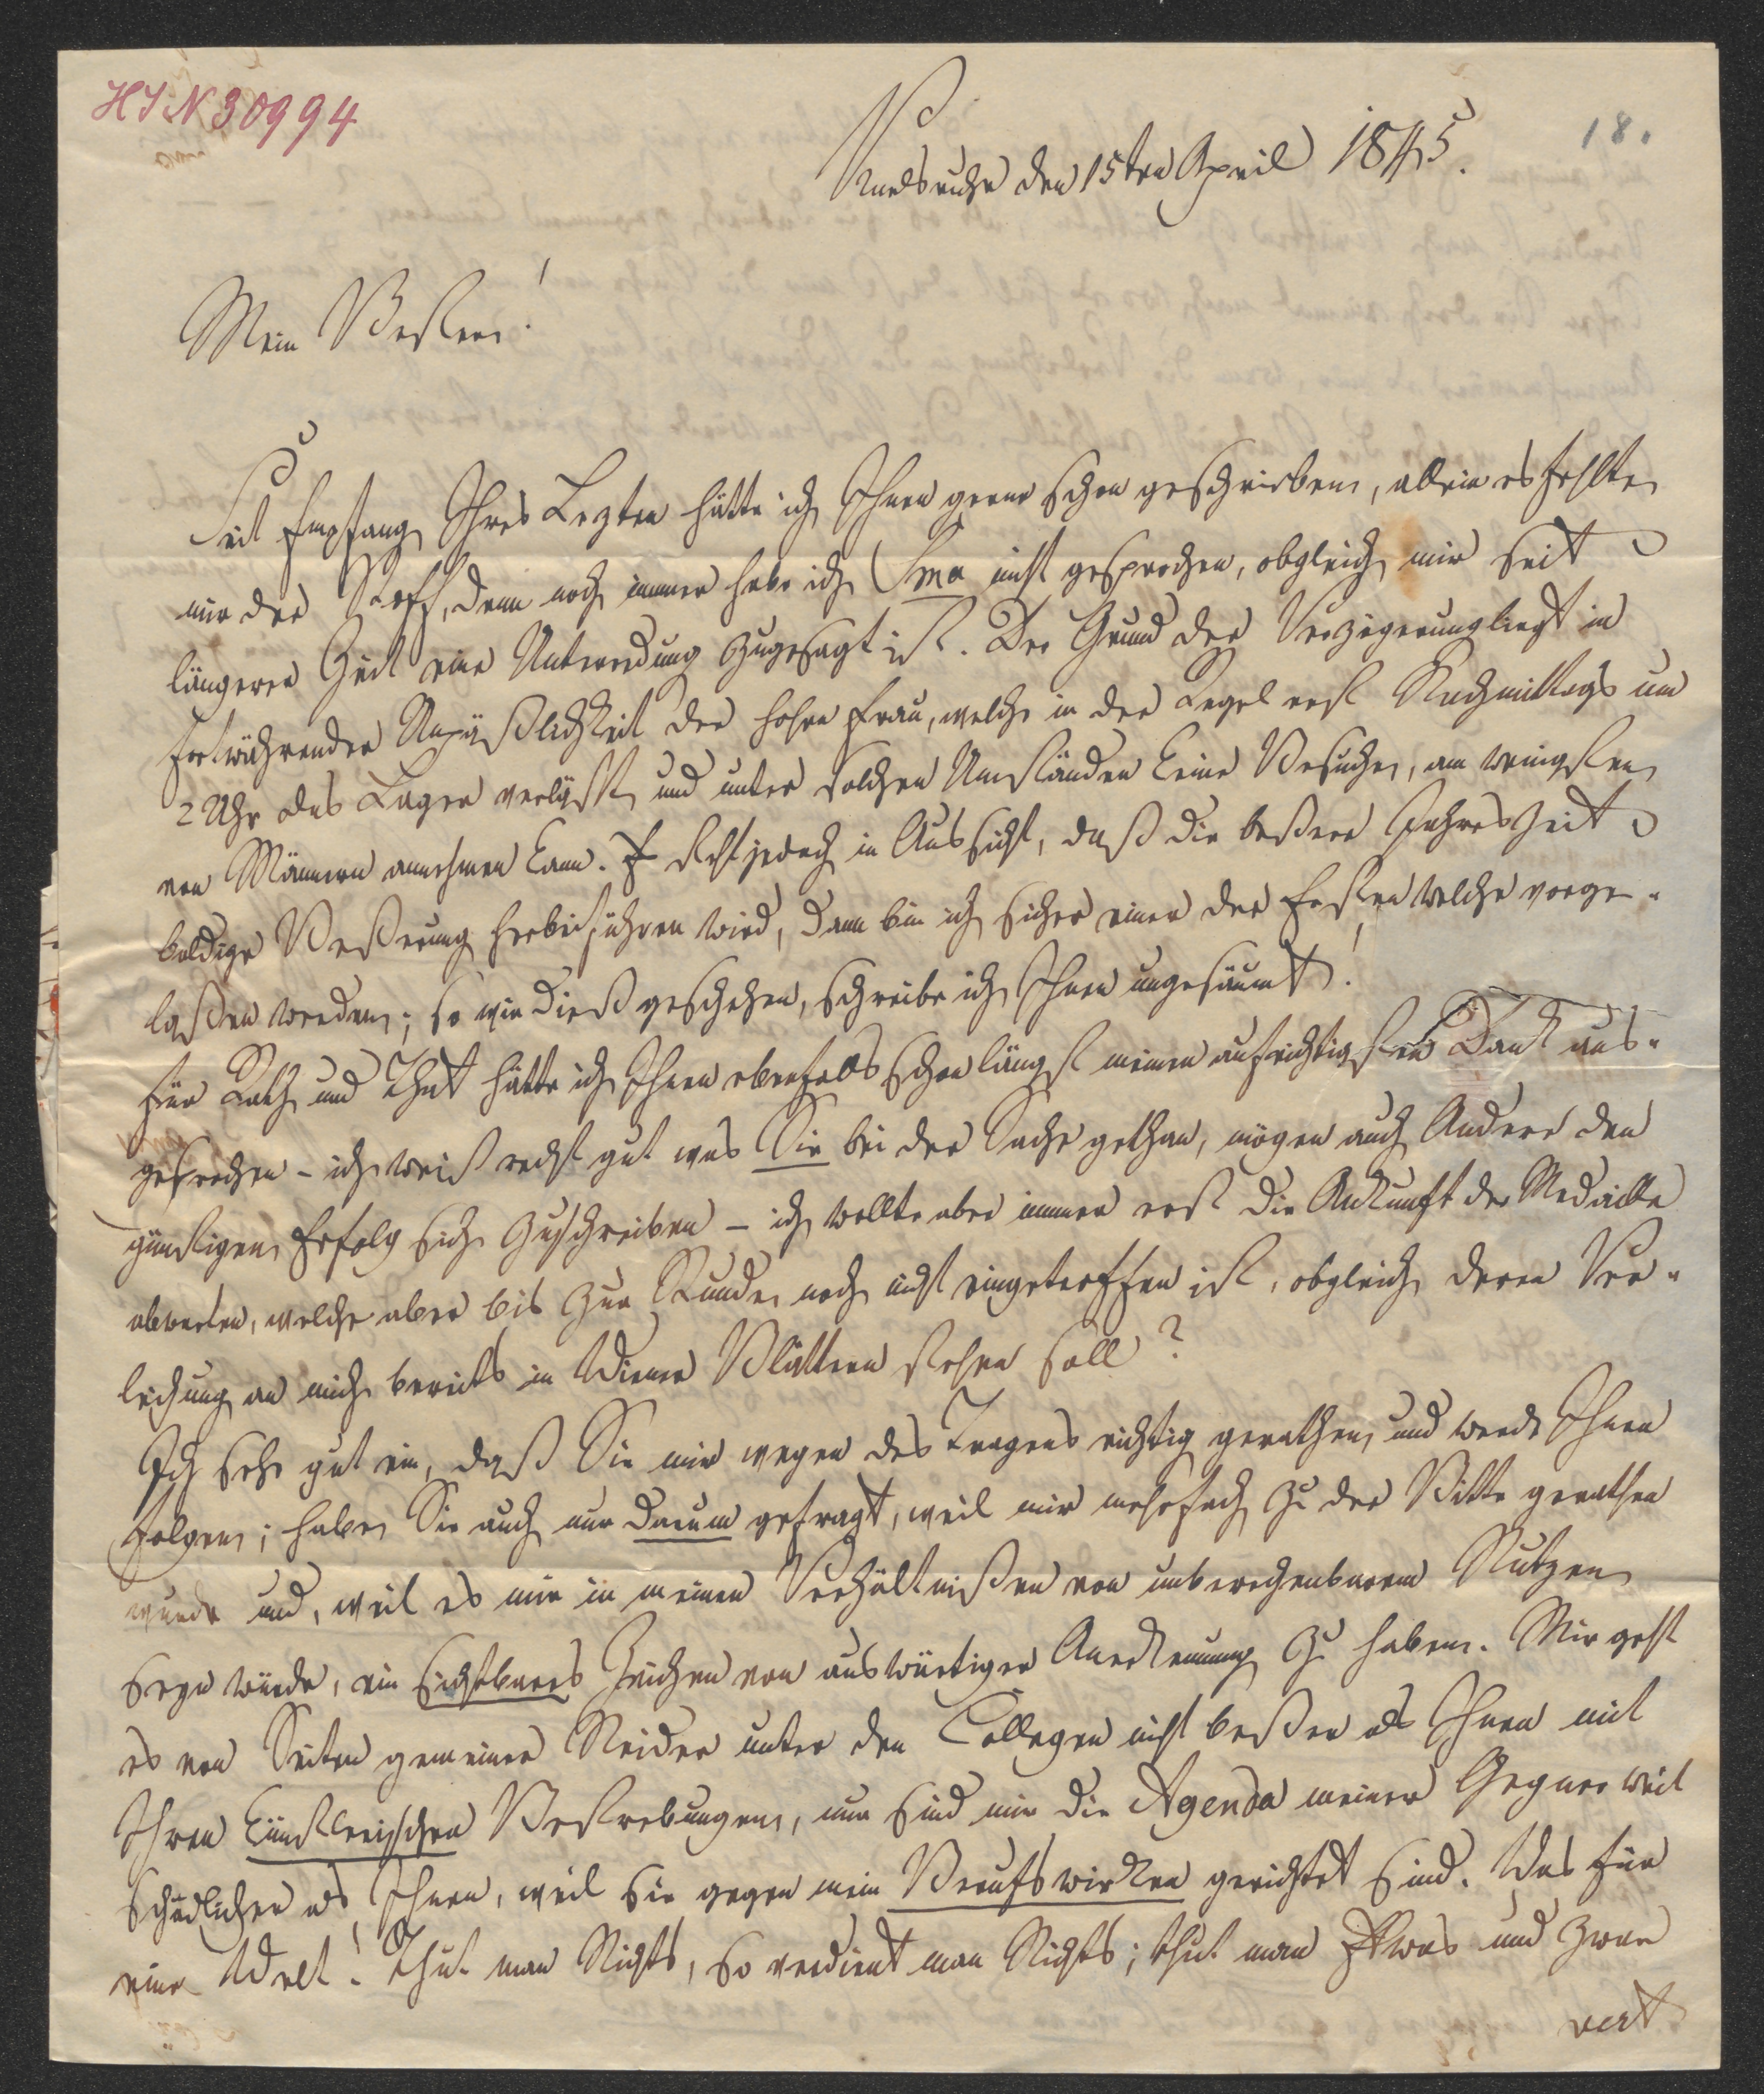 HIN 30994
18.
Karlsruhe den 15ten April 1845.
Mein Bester!
Seit Empfang Ihres Lezten hätte ich Ihnen gerne schon geschrieben, allein es fehlte
mir der Stoff, denn noch immer habe ich nicht gesprochen, obgleich mir seit
längerer Zeit eine Unterredung zugesagt ist. Der Grund der Verzögerung liegt in
fortwährender Unpäßlichkeit der hohen Frau, welche in der Regel erst Nachmittags um
2 Uhr das Lager verläßt, und unter solchen Umständen keine Besuche, am wenigsten
von Männern annehmen kann. Es steht jedoch in Aussicht, daß die beßere Jahreszeit
baldige Beßerung herbeiführen wird, dann bin ich sicher einer der Ersten welche vorge-
laßen werden; so wie dieß geschehen, schreibe ich Ihnen ungesäumt!
Für Rath und That hätte ich Ihnen ebenfalls schon längst meinen aufrichtigsten Dank aus-
gesprochen – ich weiß recht gut was Sie bei der Sache gethan, mögen auch Andere den
günstigen Erfolg sich zuschreiben – ich wollte aber immer erst die Ankunft der Medaille
abwarten, welche aber bis zur Stunde noch nicht eingetroffen ist, obgleich deren Ver-
leihung an mich bereits in Wiener Blättern stehen soll?
Ich sehe gut ein, daß Sie mir wegen des Tragens richtig gerathen, und werde Ihnen
folgen; habe Sie auch nur darum gefragt, weil mir mehrfach zu der Bitte gerathen
wurde und, weil es mir in meinen Verhältnißen von unberechenbarem Nutzen
seyn würde, ein sichtbares Zeichen von auswärtiger Anerkennung zu haben. Mir geht
es von Seiten gemeiner Neider unter den Collegen nicht beßer als Ihnen mit
Ihren künstlerischen Bestrebungen, nur sind mir die Agenda meiner Gegner weit
schädlicher als Ihnen, weil sie gegen mein Berufswirken gerichtet sind. Was für
eine Welt! Thut man Nichts, so verdient man Nichts; thut man Etwas und zwar
vert